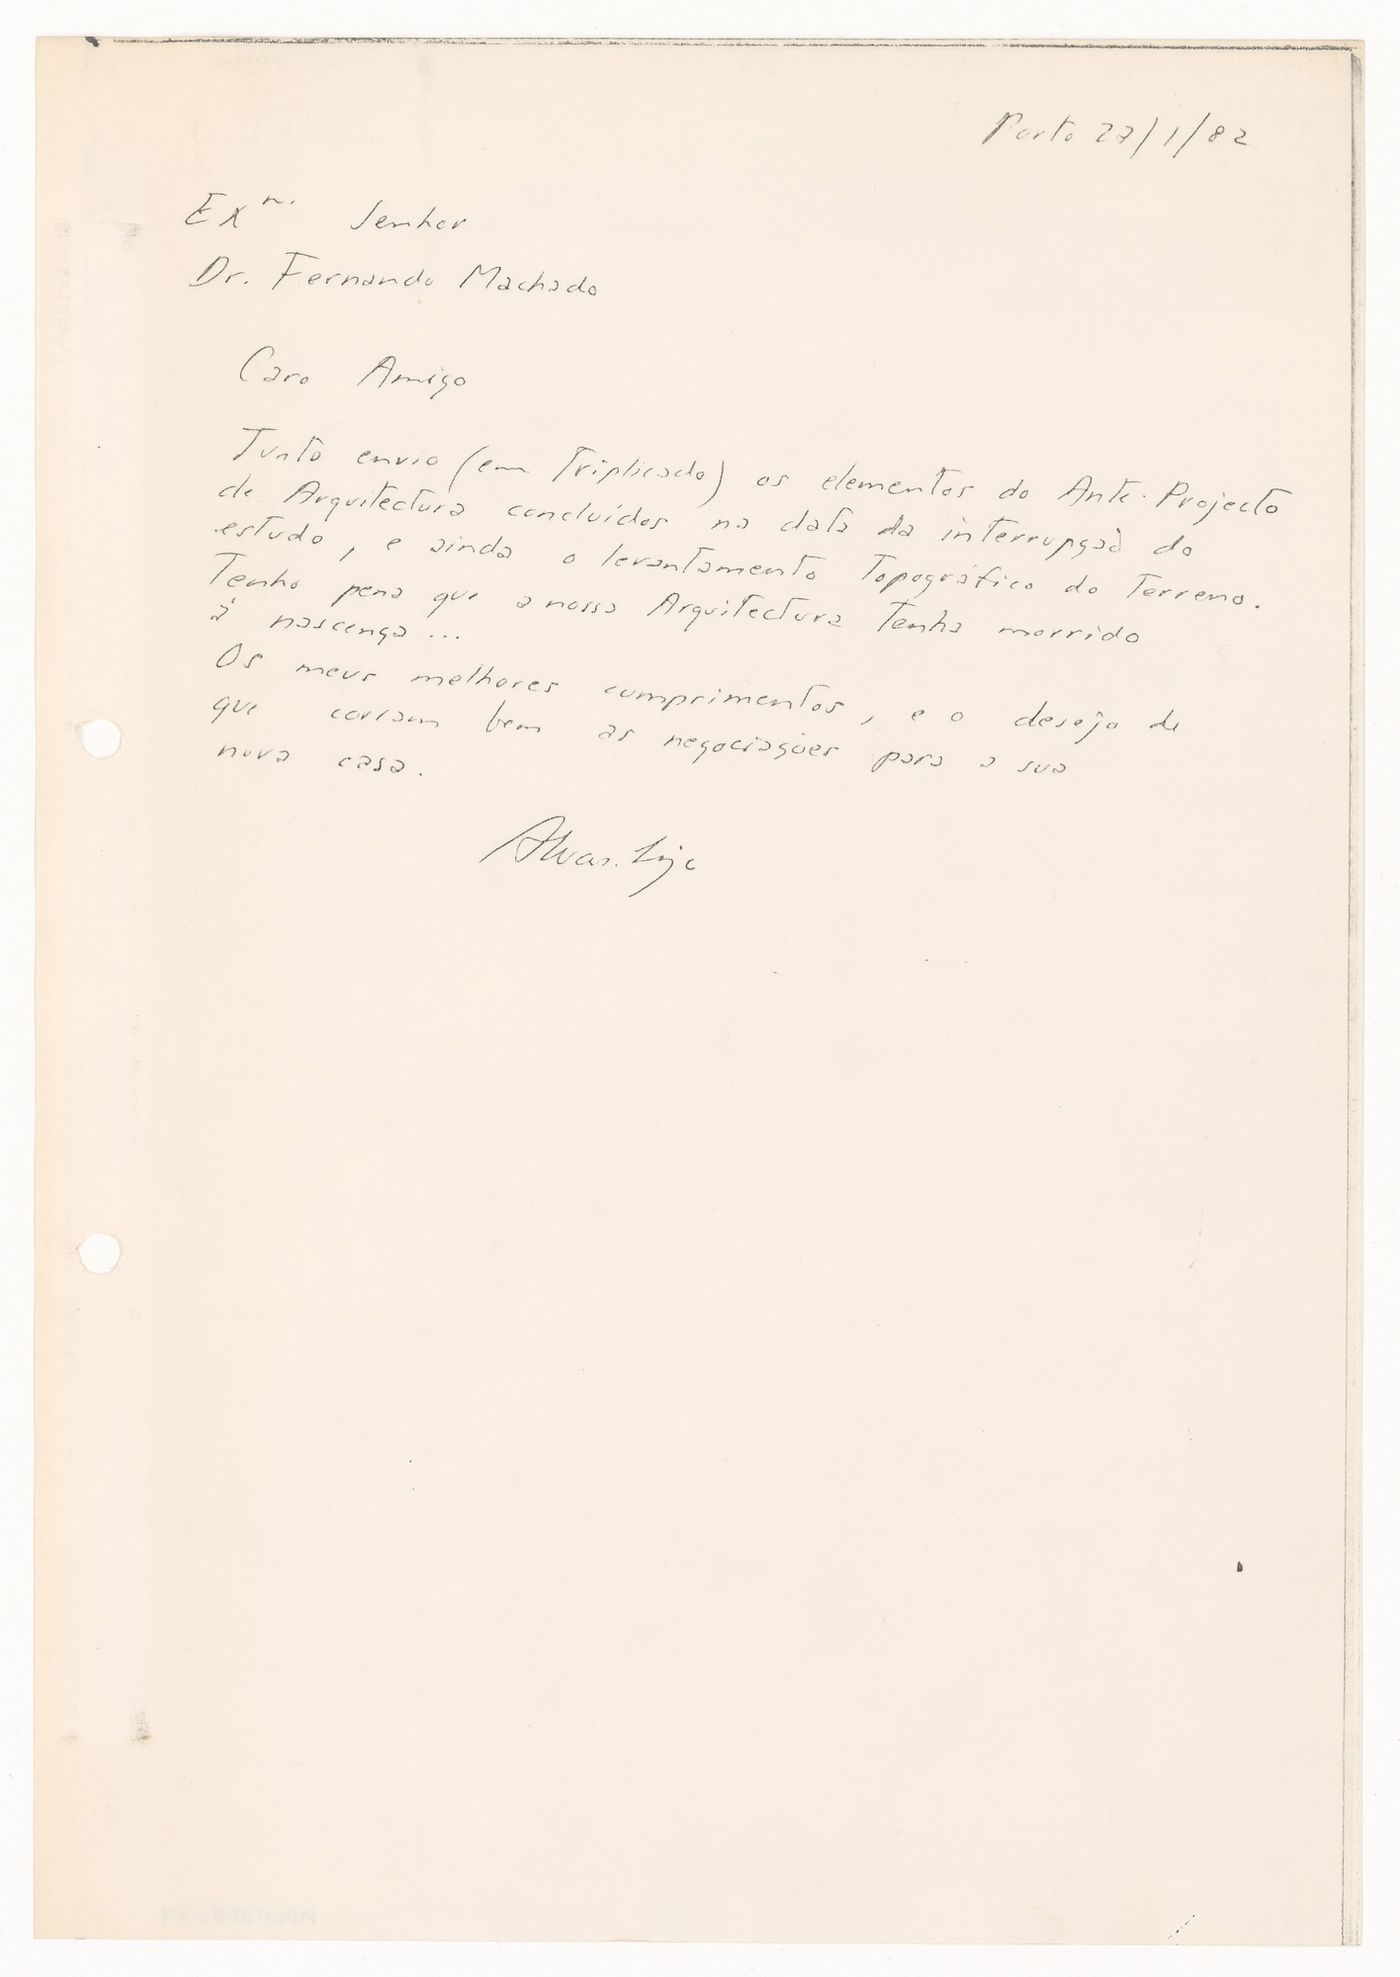 Porto 22/1/82
Exmo. Senhor
Dr. Fernando Machado
Caro Amigo
Junto envio (em triplicado) os elementos do Ante-Projecto
de Arquitectura concluídos na data da interrupção do
estudo, e ainda o levantamento topográfico do terreno.
Tenho pena que a nossa Arquitectura tenha morrido
à nascença...
Os meus melhores cumprimentos, e o desejo de
que corram bem as negociações para a sua
nova casa.
Alvaro Siza